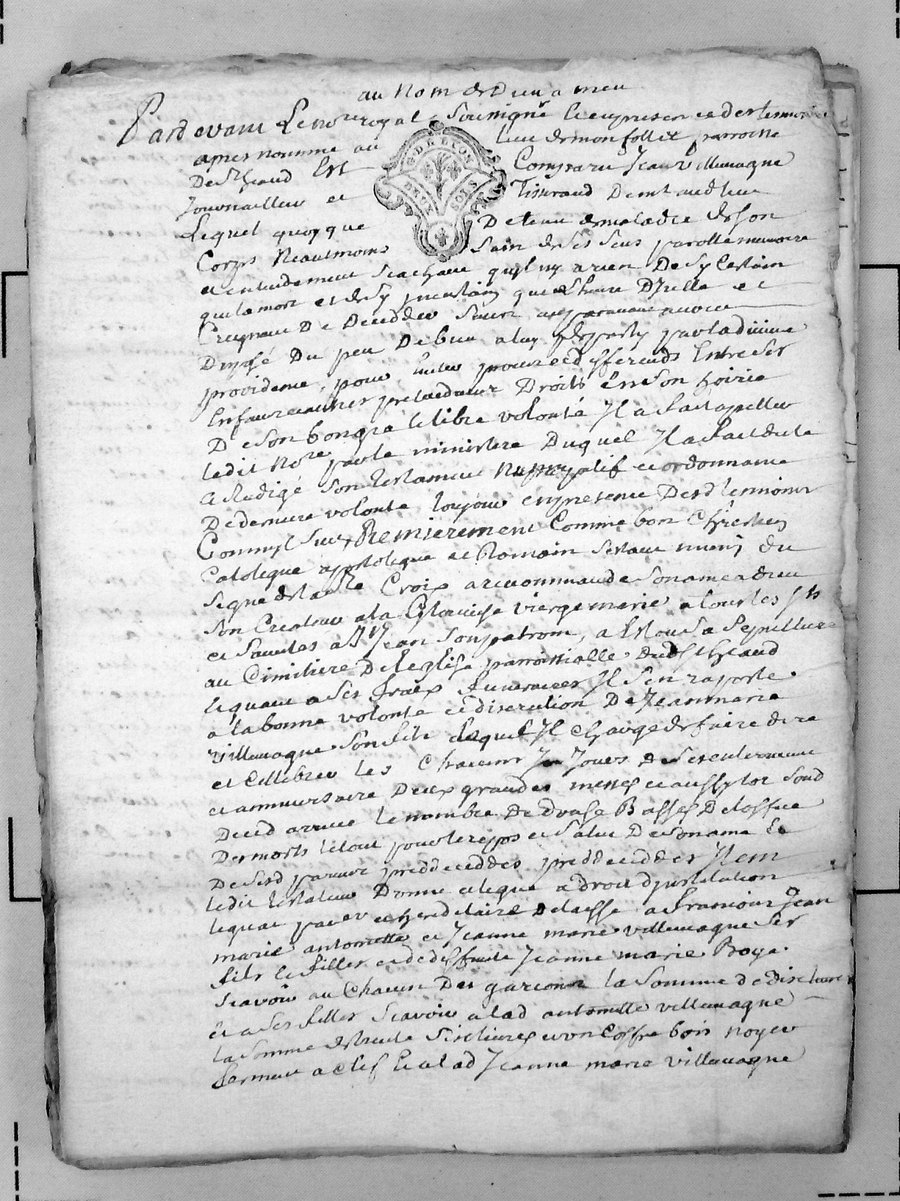 au Nom de Dieu a meu
Pardevant Le nore royal Soussigné le en presence des temoins
apres nommé au lieu de monfollet parroisse
De St heand Est Comparu Jean villemagne
Journaillier et Tisserand Demt audt lieu
Lequel quoy que Detenu de maladie de son
Corps Neautmoins Sain de ses sens parolle memoire
et entendement Scachant quil ny a rien De sy Certain
que la mort et de sy incertain que Lheure Dycelle et
Creignant De Decedder Sans auparavant avoir
Disposé Du peu De bien a luy desparty par la divine
providence, pour Eviter proces et differends Entre ses
Enfans et autres pretendants Droits En son hoirie
De son bon gré et libre volonté Il a fait appeller
ledit Nore par le ministere Duquel Il a fait dicté
et Redigé Son testament Nuncupatif et ordonnance
De derniere volonté toujours en presence Desd temoins
Comme Suit Premierement Comme bon Chrestien
Catolique appostolique et Romain Sestant muni du
Signe de la ste Croix a recommandé son ame a dieu
Son Createur a la Glorieuse vierge marie a tous les Sts
et Saintes a St Jean Son patrom, a Eslu sa Sepulture
au Cimitiere De leglise parroissialle dudt St heand
Et quant a Ses frais funeraires Il sen raporte
a la bonne volonté et discretion De Jean marie
villemagne Son fils lequel Il Charge de faire dire
et Cellebrer Les Chacuns Jours de Ses enterrement
et anniversaire Deux grandes messes et aussytot Soud
Deced arrivé le nombre de douse Basses De loffice
Des morts le tout pour le repos et Salut De Son ame Et
De Sesd parants preddeceddés Item
ledit testateur Donne et legue a droit dinstitution
et hereditaire Delaisse a francois Jean
marie antoinette et Jeanne marie villemagne Ses
fils et filles et de deffunte Jeanne marie Boye
Scavoir au Chacun Des garçons la Somme de dix livres
Et a Ses filles Scavoir a lad antoinette villemagne
la Somme de trente Six livres et un Coffre bois noyer
fermant a Clef Et a lad Jeanne marie villemagne
G. DE LYON
DEUX SOLS